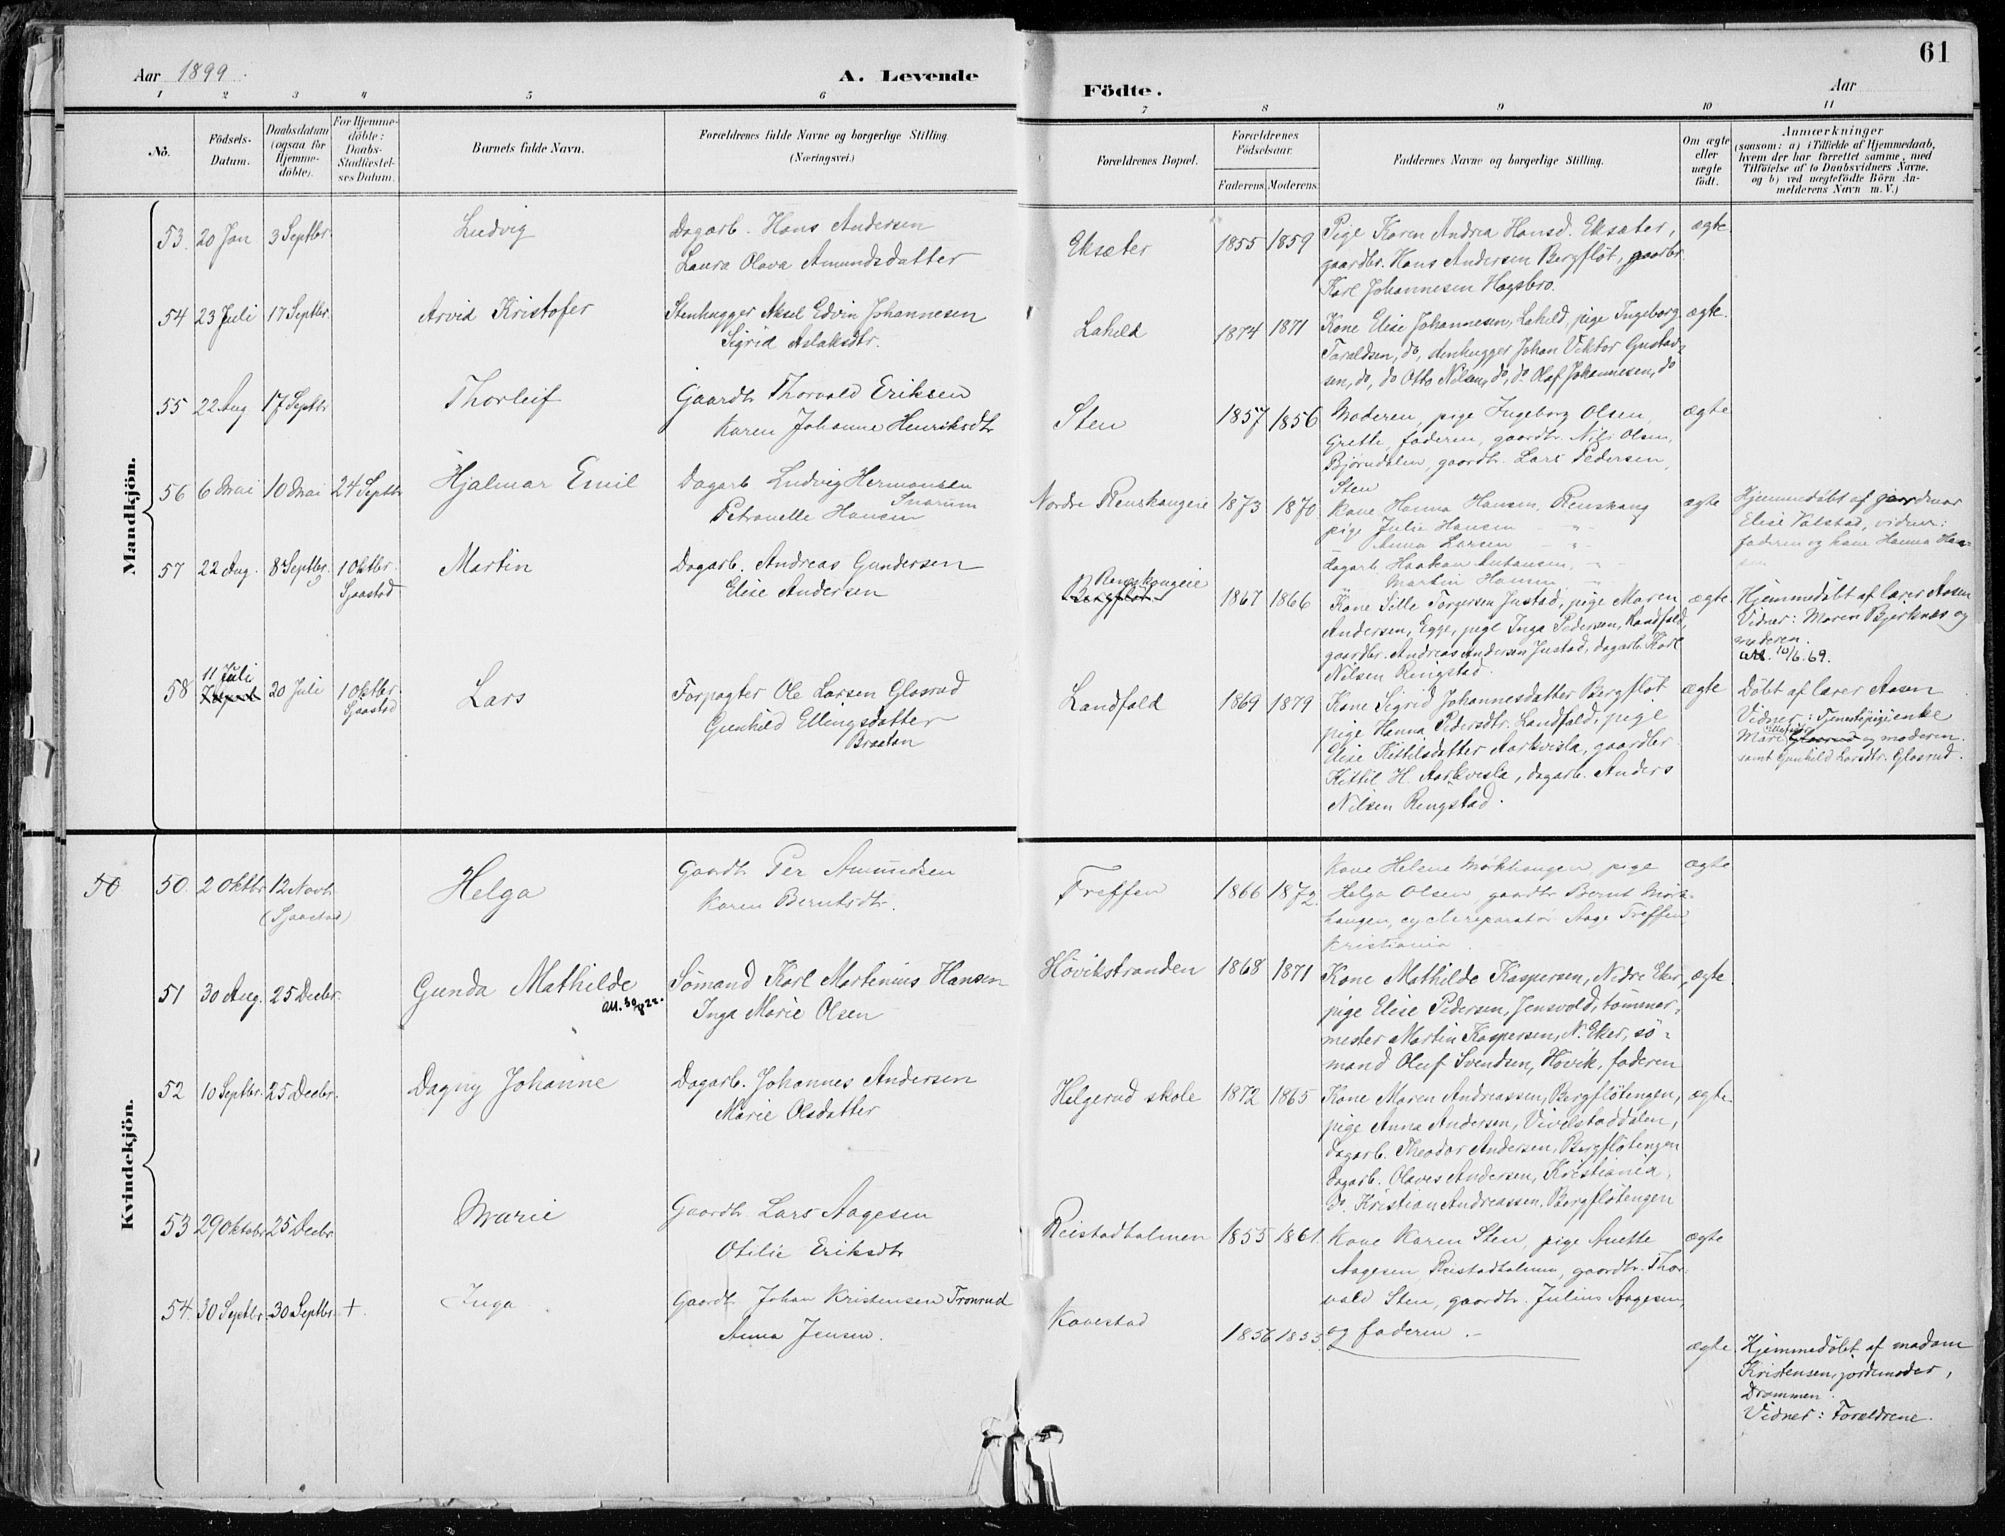 61
Aar 1899
A. Levende
Födte.
Aar
1 2 3 4 5 6 7 8 9 10 11
No.
Födsels-
Datum.
Daabsdatum
(ogsaa för
Hjemme-
döbte).
For Hjemme-
döbte:
Daabs-
Stadfæstel-
ses Datum.
Barnets fulde Navn.
Forældrenes fulde Navne og borgerlige Stilling
(Næringsvei.)
Forældrenes Bopæl.
Forældrenes
Födselsaar.
Faderens. Moderens.
Faddernes Navne og borgerlige Stilling.
Om ægte
eller
uægte
födt.
Anmærkninger
(saasom: a) i Tilfælde af Hjemmedaab,
hvem der har forrettet samme, med
Tilföielse af to Daabsvidners Navne,
og b) ved uægtefödte Börn An-
melderens Navn m. V.)
Mandkjön.
53. 20 Jan 3 Septbr. Ludvig
Dagarb. Hans Andersen
Laura Olava Amundsdatter
Eksæter 1855 1859
Pige Karen Andrea Hansd. Eksæter,
gaardbr. Hans Andersen Bergfløt, gaardbr.
Karl Johannesen Hægsbro.
ægte
54 23 Juli 17 Septbr. Arvid Kristofer
Stenhugger Aksel Edvin Johannesen
Sigrid Aslaksdtr.
Laheld 1874 1871
Kone Elise Johannesen, Laheld, pige Ingeborg
Taraldsen, do, stenhugger Johan Viktor Gustav-
sen, do, do Otto Nilsen, do, do Olaf Johannesen, do
ægte.
55 22 Aug 17 Septbr Thorleif
Gaardb Thorvald Eriksen
Karen Johanne Henriksdtr
Sten 1857 1856
Moderen, pige Ingeborg Olsen,
Grette, faderen, gaardbr. Nils Olsen,
Bjørndalen, gaardbr. Lars Pedersen,
Sten
ægte
56 6 Mai 10 Mai 24 Septbr Hjalmar Emil
Dagarb Ludvig Hermansen
Snarum
Petronelle Hansen
Nordre Renskougeie 1873 1870
Kone Hanna Hansen, Renskoug
pige Julie Hansen "
Anna Larsen "
dagarb Haakon Antonsen, "
Martin Hansen "
ægte
Hjemmedøbt af jordmor
Elise Valstad, vidner:
faderen og kone Hanna Han-
sen
57 22 Aug. 8 Septbr. 1 Oktbr. Martin
Sjaastad
Dagarb. Andreas Gundersen
Elise Andersen
Renskougeie
Bergfløt 1867 1866
Kone Sille Torgersen Justad, pige Maren
Andersen, Egge, pige Inga Pedersen, Landfald,
gaardbr. Andreas Andersen Justad, dagarb. Karl
Nilsen Ringstad.
ægte.
Hjemmedøbt af lærer Aasen
Vidner: Maren Bjerknæs og
moderen.
att. 10/6.69.
58 11 Juli 20 Juli 1 Oktbr. Lars
Sjaastad
Forpagter Ole Larsen Glosrud
Gunhild Ellingsdatter
Braatan
Landfald 1869 1879
Kone Sigrid Johannesdatter Bergfløt
pige Hanna Pedersdtr. Landfald, pige
Elise Kittilsdatter Aarkvisla, gaardbr.
Kittil H. Aarkvisla, dagarb. Anders
Nilsen Ringstad.
ægte
Døbt af lærer Aasen
Vidner: Tjenestepigeenke
Mari Glosrud og moderen.
samt Gunhild Larsdtr. Glosrud.
Kvindekjön.
50
50. 2 Oktbr 12 Novb. Helga
(Sjaastad)
Gaardb Per Amundsen
Karen Berntsdtr.
Treffen 1866 1872.
Kone Helene Mørkhaugen, pige
Helga Olsen gaardbr Bernt Mørk-
haugen, cyclereparatør Aage Treffen
Kristiania.
ægte
51 30 Aug. 25 Decbr. Gunda Mathilde
att. 30/8 22.
Sømand Karl Martinius Hansen
Inga Marie Olsen
Høvikstranden 1868 1871
Kone Mathilde Kaspersen, Nedre Eker,
pige Elise Pedersen, Jensvold, tømmer-
mester Martin Kaspersen, N. Eker, sø-
mand Oluf Svendsen, Høvik, faderen
ægte.
52 10 Septbr. 25 Decbr. Dagny Johanne
Dagarb. Johannes Andersen
Marie Olsdatter
Helgerud skole 1872 1865
Kone Maren Andreassen, Bergfløtengen,
pige Anna Andersen, Vivelstaddalen,
dagarb. Theodor Andersen, Bergfløtengen
dagarb. Olaves Andersen, Kristiania,
do. Kristian Andreassen, Bergfløtengen
ægte.
53 29 Oktobr 25 Decbr Marie
Gaardb Lars Aagesen
Otilie Eriksdtr
Reistadholmen 1855 1861.
Kone Karen Sten, pige Anette
Aagesen Reistadholmen, gaardbr. Thor-
vald Sten, gaardbr. Julius Aagesen,
og faderen.
ægte
54. 30 Septbr. 30 Septbr. + Inga
Gaardb Johan Kristensen Tronrud
Anna Jensen.
Kovestad 1856 1855.
ægte
Hjemmedøbt af madam
Kristensen, jordemoder,
Drammen.
Vidner: Forældrene.